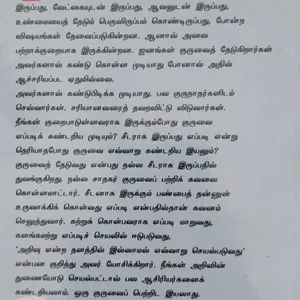 இருப்பது, வேட்கையுடன் இருப்பது, ஆவலுடன் இருப்பது,
உண்மையைத் தேடும் பெருவிருப்பம் கொண்டிருப்பது, போன்ற
விஷயங்கள் தேவைப்படுகின்றன. ஆனால் அவை
பற்றாக்குறையாக இருக்கின்றன. ஜனங்கள் குருவைத் தேடுகிறார்கள்
அவர்களால் கண்டு கொள்ள முடியாது போனால் அதில்
ஆச்சரியப்பட ஏதுமில்லை.
அவர்களால் கண்டுபிடிக்க முடியாது. பல குருநாதர்களிடம்
செல்வார்கள். சரியானவரைத் தவறவிட்டு விடுவார்கள்.
நீங்கள் குறைபாடுள்ளவராக இருக்கும்போது குருவை
எப்படிக் கண்டறிய முடியும்? சீடராக இருப்பது எப்படி என்று
தெரியாதபோது குருவை எவ்வாறு கண்டறிய இயலும்?
குருவைத் தேடுவது என்பது நல்ல சீடராக இருப்பதில்
துவங்குகிறது. நல்ல சாதகர் குருவைப் பற்றிக் கவலை
கொள்ளமாட்டார். சீடனாக இருக்கும் பண்பைத் தன்னுள்
உருவாக்கிக் கொள்வது எப்படி என்பதில்தான் கவனம்
செலுத்துவார். கற்றுக் கொள்பவராக எப்படி மாறுவது,
களங்கமற்று எப்படிச் செயலில் ஈடுபடுவது,
'அறிவு என்ற தளத்தில் இல்லாமல் எவ்வாறு செயல்படுவது'
என்பன குறித்து அவர் யோசிக்கிறார். நீங்கள் அறிவின்
துணையோடு செயல்பட்டால் பல ஆசிரியர்களைக்
கண்டறியலாம். ஒரு குருவைப் பெற்றிட இயலாது.